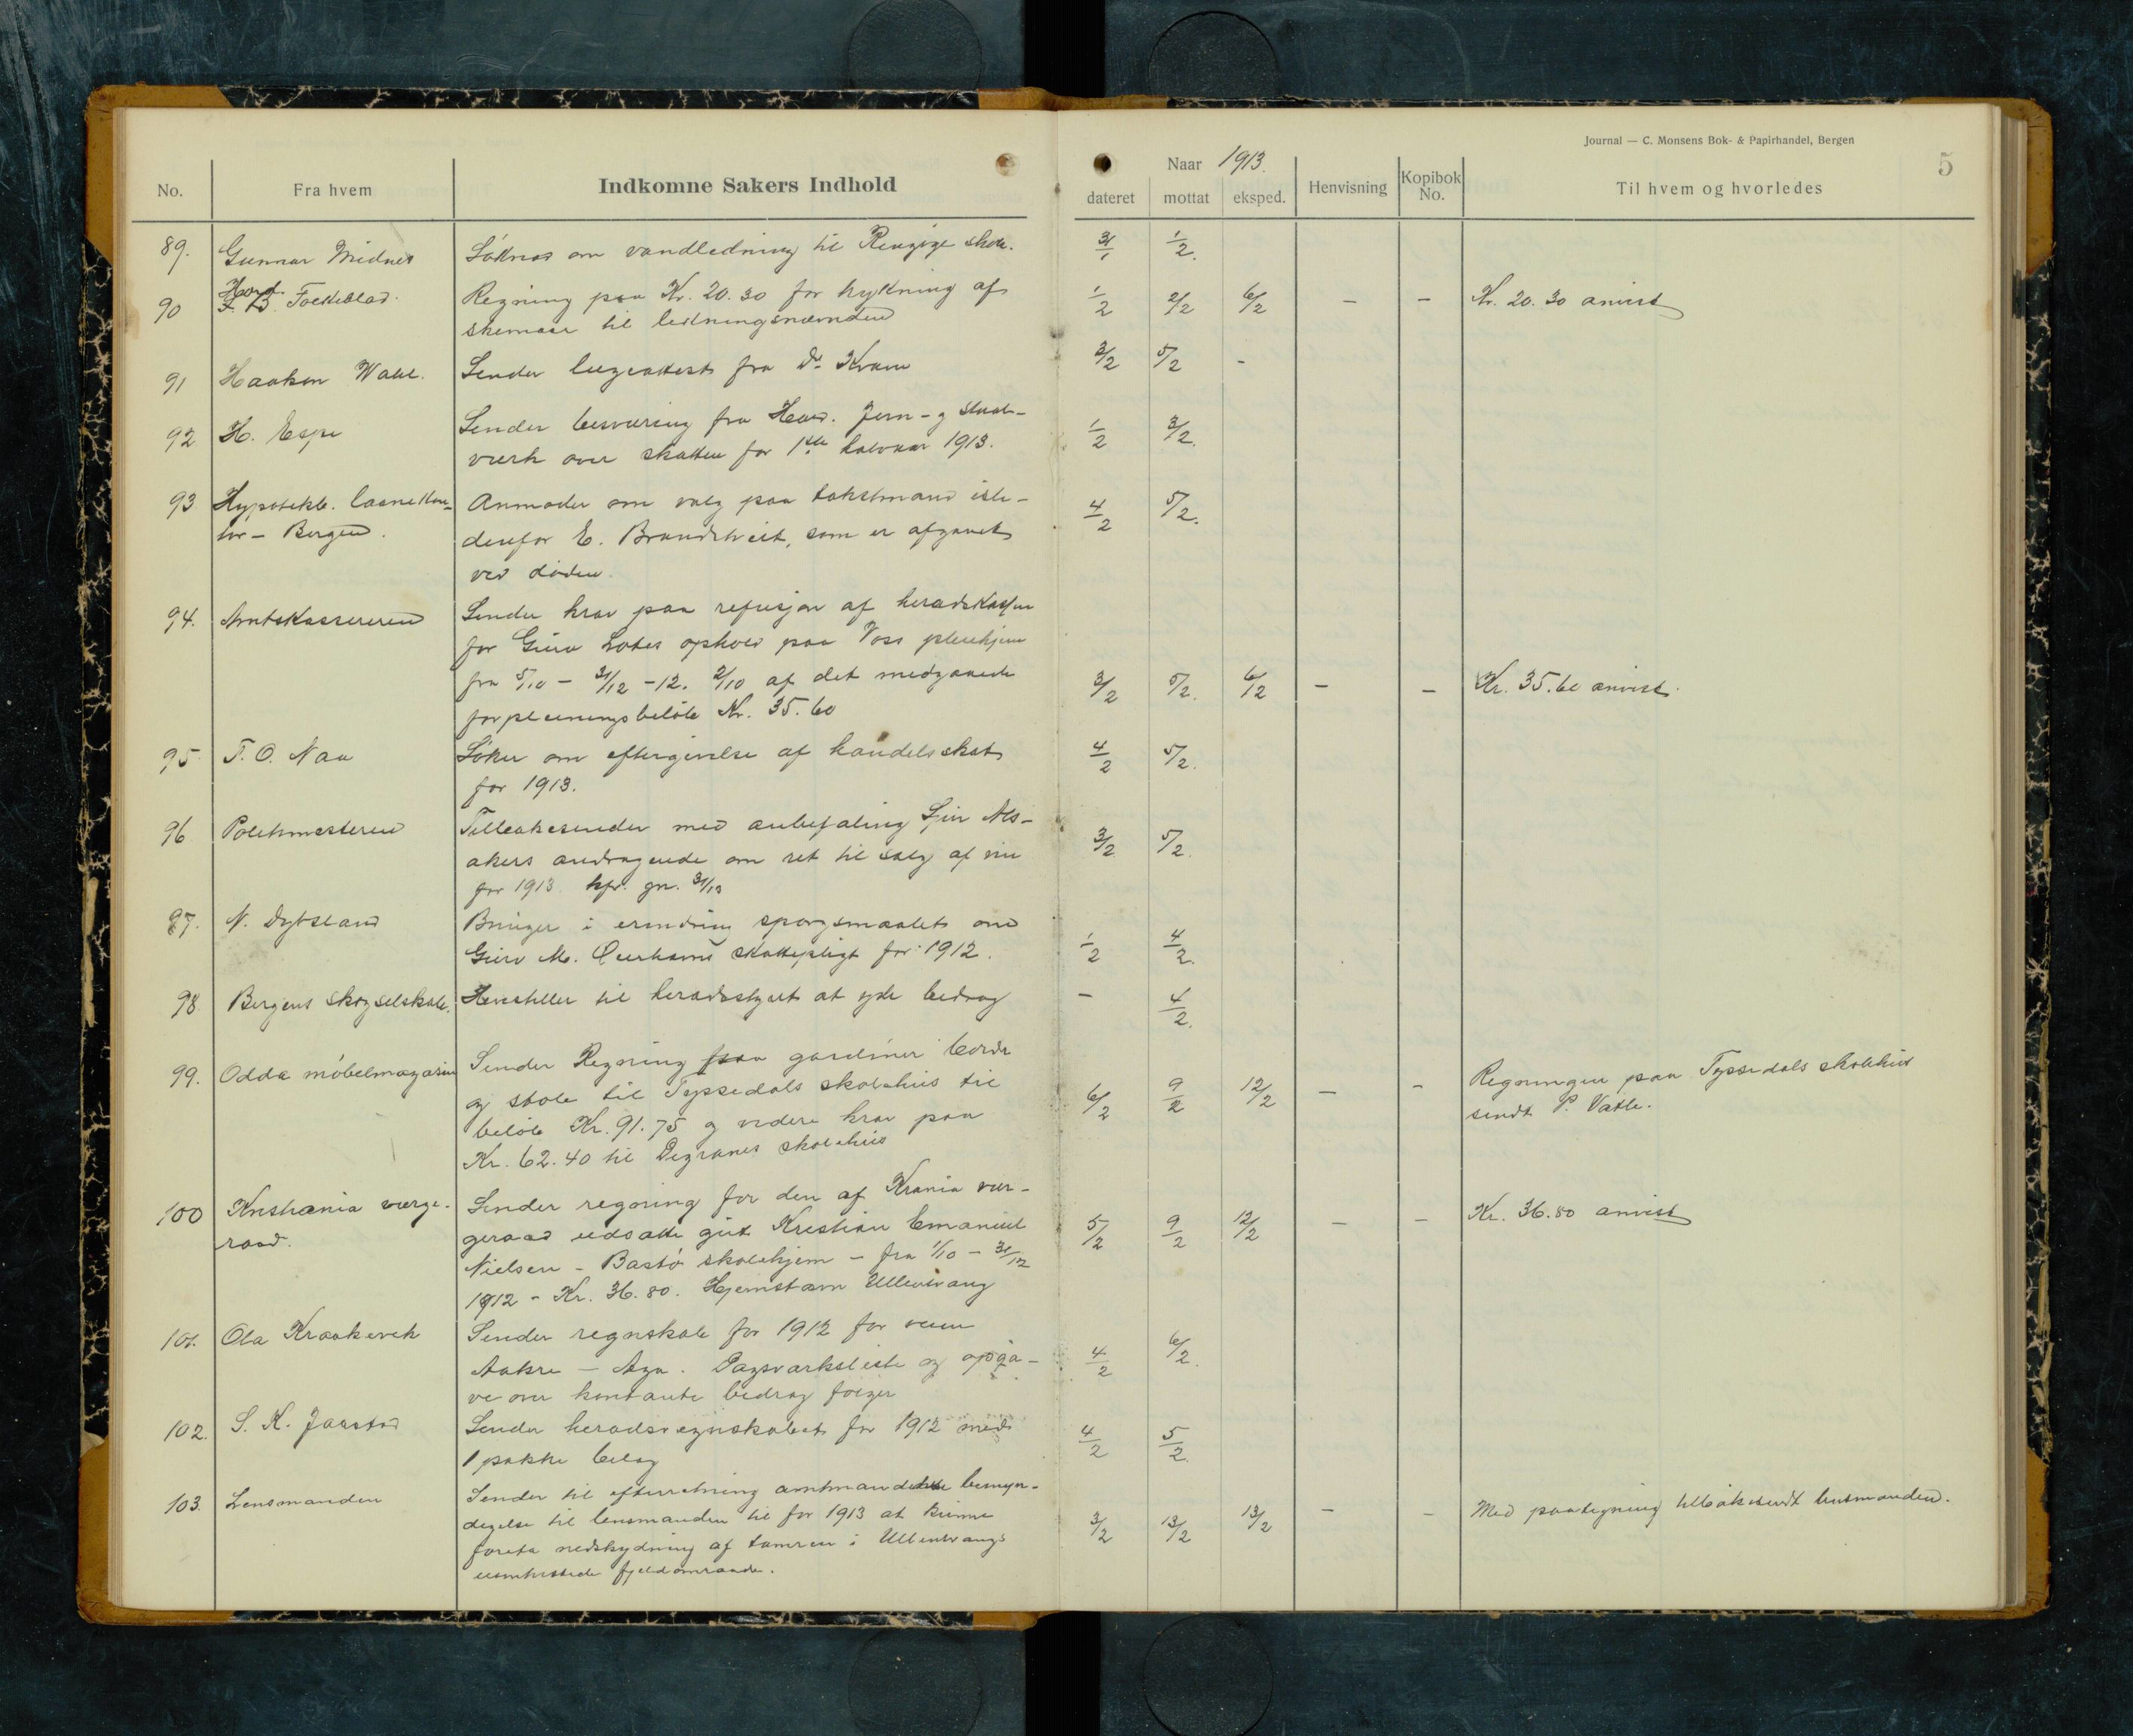 Journal — C. Monsens Bok- & Papirhandel, Bergen
5
No.
Fra hvem
Indkomne Sakers Indhold
Naar 1913.
dateret
mottat
eksped.
Henvisning
Kopibok No.
Til hvem og hvorledes
89. Gunnar Midnes Søknad om vandledning til skole. 31/1 1/2.
90 Hard. Folkeblad. Regning paa Kr. 20.30 for trykning af 1/2 2/2 6/2 — — Kr. 20.30 anvist
skemaer til ledningsnævnden
91 Haakon Wahl. Sender lægeattest fra Dr. Kvam 3/2 5/2 -
92 H. Espe Sender besværing fra Hard. Jern- og Staal- 1/2 3/2.
verk over skatten for 1ste halvaar 1913.
93 Hypotekb. laanekon- Anmoder om valg paa takstmand iste- 4/2 5/2.
tor - Bergen. denfor E. Brandstveit, som er afgaaet
ved døden.
94. Amtskassereren Sender krav paa refusjon af heradskassen
for Guro Lotes ophold paa Voss pleiehjem
fra 5/10 - 31/12 -12. 2/10 af det medgaaede 3/2 5/2. 6/2 — — Kr. 35.60 anvist.
forpleiningsbeløb Kr. 35.60
95 T. O. Naa Søker om eftergivelse af handelsskat 4/2 5/2.
for 1913.
96 Politimesteren Tilbakesender med anbefaling Als- 3/2 5/2.
akers andragende om ret til salg af vin
for 1913
97. N. Dybsland Bringer i erindring spørgsmaalet om
Guro M. skattepligt for 1912. 1/2 4/2.
98 Bergens Skogselskab. Henstiller til heradsstyret at yde bidrag — 4/2.
99. Odda møbelmagasin Sender Regning paa gardiner borde
og stole til Tyssedals skolehus til 6/2 9/2 12/2 — - Regningen paa Tyssedals skolehus
beløb Kr. 91.75 og videre krav paa sendt P. Vatle.
Kr. 62.40 til Digranes skolehus
100 Kristiania værge- Sender regning for den af Krania vær-
raad. geraad udsatte gut Kristian Emanuel 5/2 9/2 12/2 — — Kr. 36.80 anvist
Nielsen - Bastø skolehjem - fra 1/10 - 31/12
1912 - Kr. 36.80. Hjemstavn Ullensvang
101. Ola Kraakevik Sender regnskab for 1912 for veien
Aakre — Aga. Dagsverksliste og opga- 4/2 6/2.
ve over kontante bidrag følger
102. S. K. Jaastad Sender heradsregnskabet for 1912 med 4/2 5/2.
1 pakke bilag
103. Lensmanden Sender til efterretning amtmandens bemyn-
digelse til lensmanden til for 1913 at kunne 3/2 13/2 13/2 — — Med paategning tilbakesendt lensmanden.
foreta nedskydning af tamren i Ullensvangs
fjeldomraade.